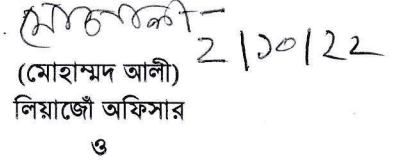 2/10/22
(মোহাম্মদ আলী)
লিয়াজোঁ অফিসার
ও